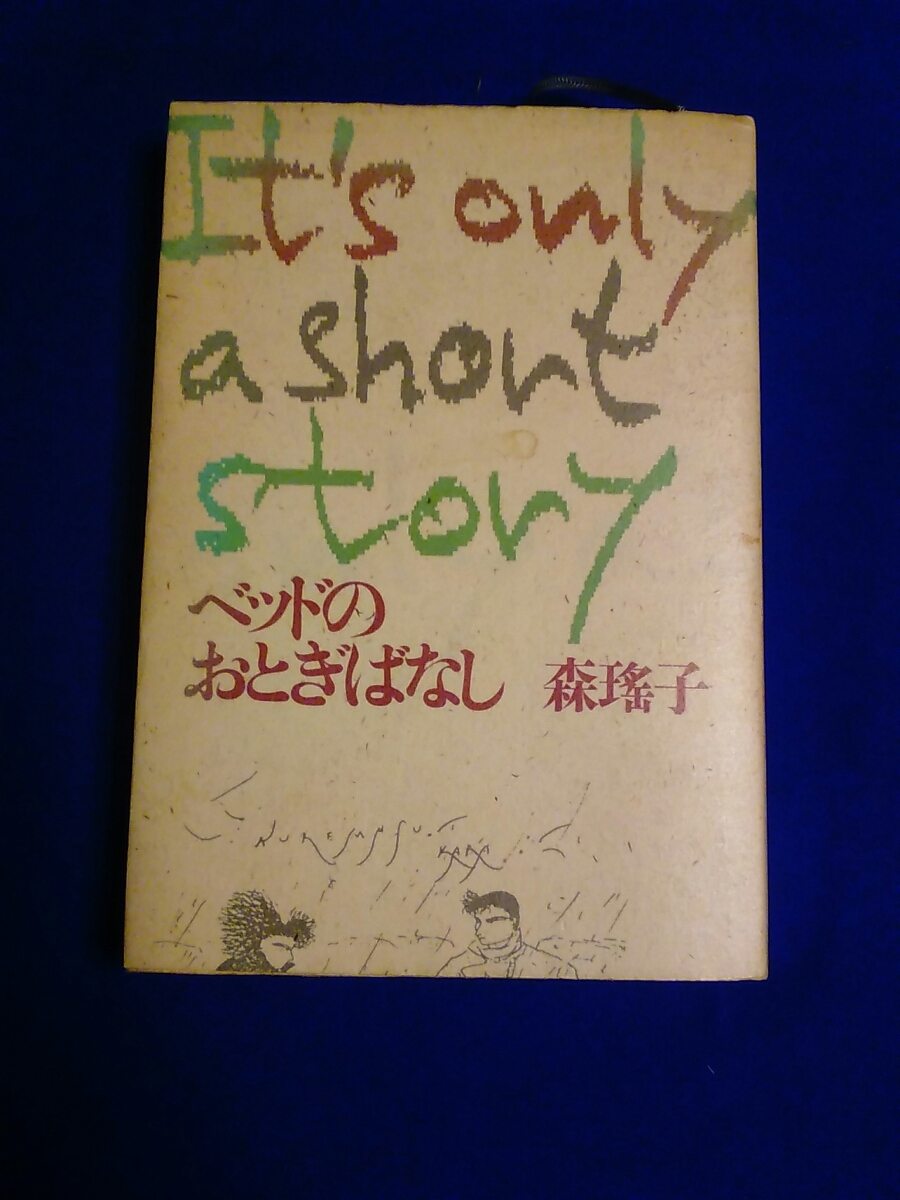 It's only
a short
story
ベッドの
おとぎばなし 森瑤子